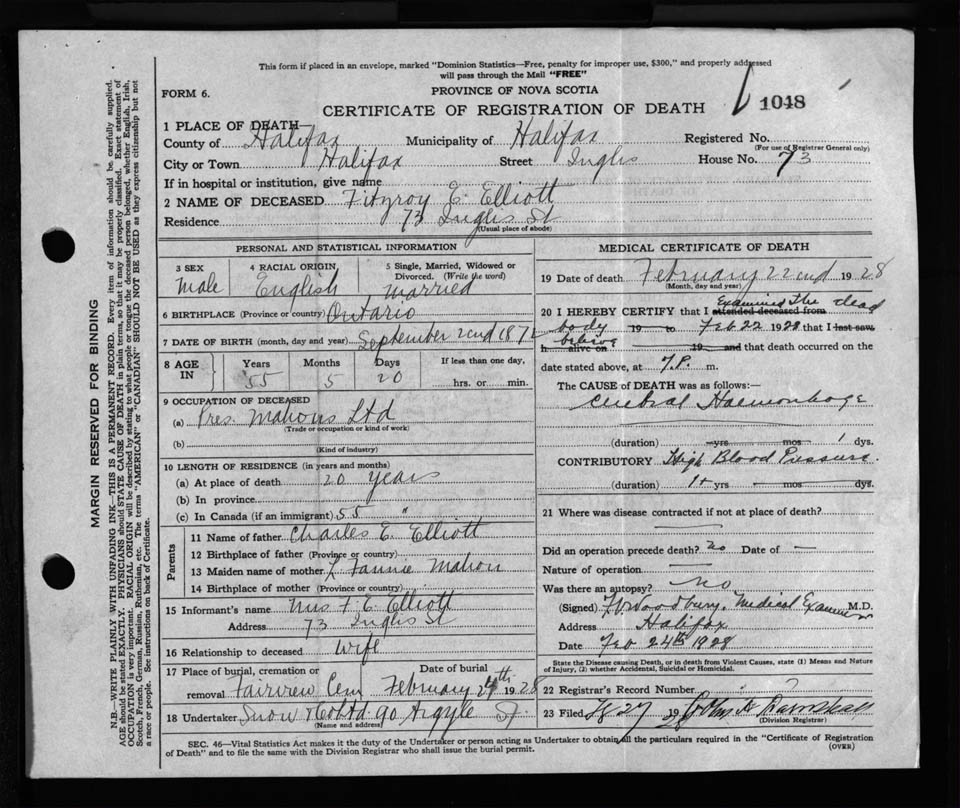 This form if placed in an envelope, marked "Dominion Statistics—Free, penalty for improper use, $300," and properly addressed
will pass through the Mail "FREE"
FORM 6.
PROVINCE OF NOVA SCOTIA
CERTIFICATE OF REGISTRATION OF DEATH
1048
1 PLACE OF DEATH—
County of Halifax Municipality of Halifax Registered No.
(For use of Registrar General only)
City or Town Halifax Street Inglis House No. 73
If in hospital or institution, give name
2 NAME OF DECEASED Fitzroy E. Elliott
Residence 73 Inglis St
(Usual place of abode)
PERSONAL AND STATISTICAL INFORMATION
3 SEX 4 RACIAL ORIGIN 5 Single, Married, Widowed or
Divorced. (Write the word)
Male English Married
6 BIRTHPLACE (Province or country) Ontario
7 DATE OF BIRTH (month, day and year) September 2cnd 1872
8 AGE IN Years Months Days If less than one day,
55 5 20 hrs. or min.
9 OCCUPATION OF DECEASED
(a) Pres. Mahons Ltd
(Trade or occupation or kind of work)
(b)
(Kind of industry)
10 LENGTH OF RESIDENCE (in years and months)
(a) At place of death 20 years
(b) In province
(c) In Canada (if an immigrant) 55 "
Parents
11 Name of father Charles E. Elliott
12 Birthplace of father (Province or country)
13 Maiden name of mother L Fannie Mahon
14 Birthplace of mother (Province or country)
15 Informant's name Mrs F E Elliott
Address 73 Inglis St
16 Relationship to deceased Wife
17 Place of burial, cremation or Date of burial
removal Fairview Cem February 24th 1928
18 Undertaker Snow & Co Ltd 90 Argyle St.
(Name and address)
MEDICAL CERTIFICATE OF DEATH
19 Date of death February 22cnd 1928
(Month, day and year)
Examined The dead
20 I HEREBY CERTIFY that I attended deceased from
body 19 to Feb 22 1928 that I last saw
believe
h alive on 19 and that death occurred on the
date stated above, at 7.P. m.
The CAUSE of DEATH was as follows:—
Cerebral Haemorrhage
(duration) yrs mos 1 dys.
CONTRIBUTORY High Blood Pressure.
(duration) 1+ yrs mos dys.
21 Where was disease contracted if not at place of death?
Did an operation precede death? no Date of —
Nature of operation —
Was there an autopsy? No
(Signed) Woodbury. Medical Examiner M.D.
Address Halifax
Date Feb 24th 1928
State the Disease causing Death, or in death from Violent Causes, state (1) Means and Nature
of Injury, (2) whether Accidental, Suicidal or Homicidal.
22 Registrar's Record Number
23 Filed 27 19
(Division Registrar)
SEC. 46—Vital Statistics Act makes it the duty of the Undertaker or person acting as Undertaker to obtain all the particulars required in the "Certificate of Registration
of Death" and to file the same with the Division Registrar who shall issue the burial permit.
(OVER)
MARGIN RESERVED FOR BINDING
N.B.—WRITE PLAINLY WITH UNFADING INK—THIS IS A PERMANENT RECORD. Every item of information should be carefully supplied.
AGE should be stated EXACTLY. PHYSICIANS should STATE CAUSE OF DEATH in plain terms, so that it may be properly classified. Exact statement of
OCCUPATION is very important. RACIAL ORIGIN will be described by stating to what people or tongue the deceased person belonged, whether English, Irish,
Scotch, French, German, Russian, Ruthenian, etc. The terms "AMERICAN" or "CANADIAN" SHOULD NOT BE USED as they express citizenship but not
a race or people. See instructions on back of Certificate.